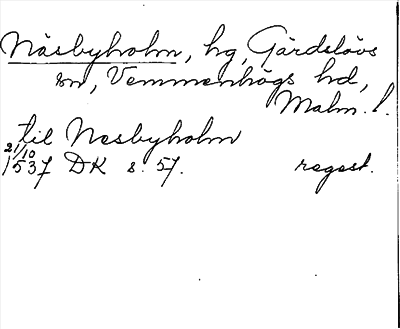 Näsbyholm, hg, Gärdslövs
sn, Vemmenhögs hd,
Malm. l.
til Nesbyholm
21/10
1537 DK s. 57. regest.